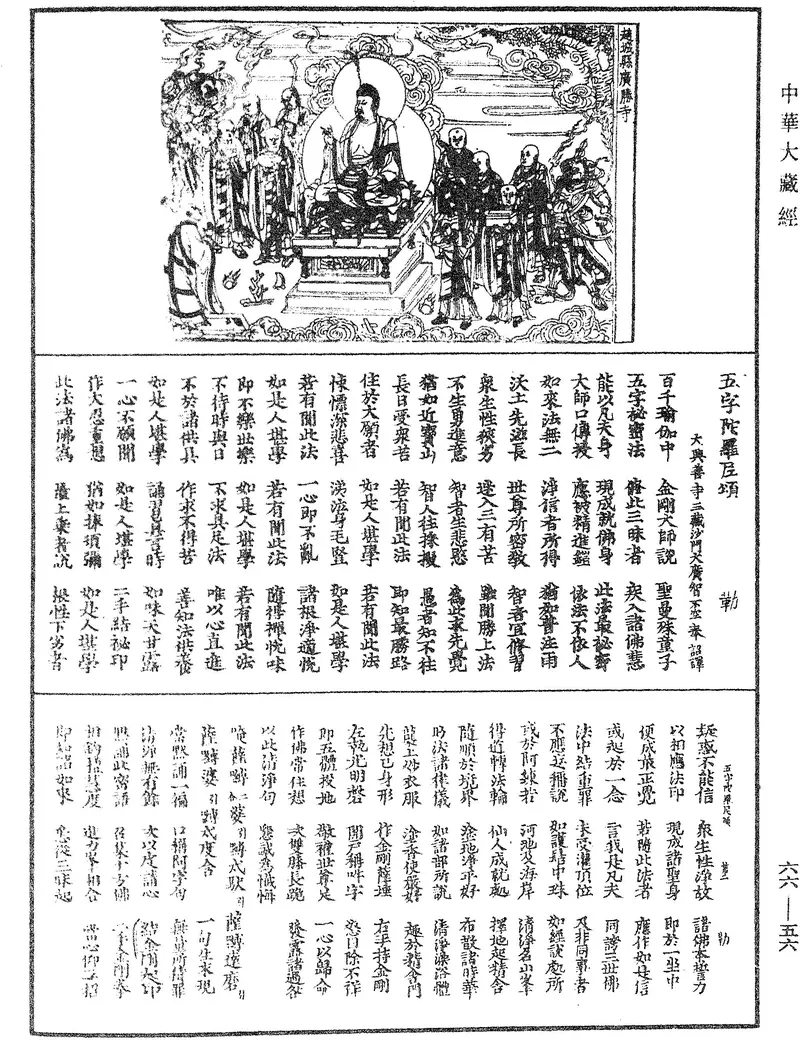 中華大藏經
趙城縣廣勝寺
五字陀羅尼頌 勒
大興善寺三藏沙門大廣智不空奉 詔譯
百千瑜伽中 金剛大師說 聖曼殊童子
五字秘密法 脩此三昧者 疾入諸佛慧
能以凡夫身 現成就佛身 此法最秘密
大師口傳授 應被精進鎧 依法不依人
如來法無二 淨信者所得 猶如普注雨
沃土先滋長 世尊所密教 智者宜修習
眾生性狹劣 還入三有苦 雖聞勝上法
不生勇進意 智者生悲愍 為此求先覺
猶如近寶山 智人往採掇 愚者知不往
長日受眾苦 若有聞此法 即知最勝路
住於大願者 如是人堪學 若有聞此法
悚慄深悲喜 涕泣身毛豎 如是人堪學
若有聞此法 一心即不亂 諸根淨適悅
如是人堪學 若有聞此法 隨得禪悅味
即不樂世樂 如是人堪學 若有聞此法
不待時與日 不求具足法 唯以心直進
不於諸供具 作求不得苦 善知法供養
如是人堪學 誦習真言時 如味天甘露
一心不願聞 如是人堪學 二手結祕印
作大忍重想 猶如揉須彌 如是人堪學
此法諸佛為 最上乘者說 根性下劣者
五字陀羅尼頌 第二 勒
疑惑不能信 眾生性淨故 諸佛本誓力
以相應法印 現成諸聖身 即於一坐中
便成最正覺 若隨此法者 應作如是信
或起於一念 言我是凡夫 同謗三世佛
法中結重罪 未受灌頂位 及非同事者
不應送稱說 如護髻中珠 如經說處所
或於阿練若 河池及海岸 清淨名山峯
得道轉法輪 仙人成就處 擇地起精舍
隨順於境界 塗地淨妙好 布散諸時華
助法諸律儀 如諸部所說 清淨澡浴體
龍王妙衣服 塗香使嚴好 趣於精舍門
先想己身形 作金剛薩埵 右手持金剛
左執光明磬 開戶稱吽字 怒目除不祥
即五體投地 敬禮世尊足 一心以歸命
作佛常住想 次雙膝長跪 發露諸過咎
以此清淨句 懇誠為懺悔
唵薩嚩婆嚩戍馱薩嚩達磨
薩嚩婆嚩戍度含 一句生來現
當默誦一遍 口稱阿字句 無量所積罪
清淨無有餘 次以度請心 結金剛大印
默誦此密語 召集十方佛 二手金剛拳
相鉤檀慧度 進力峯相合 當心仰而招
即知諸如來 悉從三昧起
六六—五六